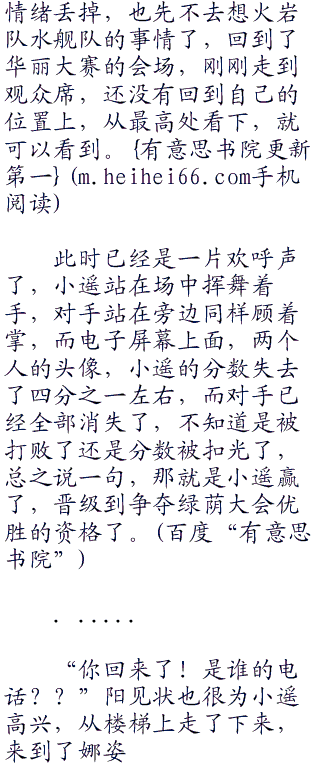 情绪丢掉，也先不去想火岩
队水舰队的事情了，回到了
华丽大赛的会场，刚刚走到
观众席，还没有回到自己的
位置上，从最高处看下，就
可以看到。{有意思书院更新
第一}(m.heihei66.com手机
阅读)
此时已经是一片欢呼声
了，小遥站在场中挥舞着
手，对手站在旁边同样顾着
掌，而电子屏幕上面，两个
人的头像，小遥的分数失去
了四分之一左右，而对手已
经全部消失了，不知道是被
打败了还是分数被扣光了，
总之说一句，那就是小遥赢
了，晋级到争夺绿荫大会优
胜的资格了。(百度“有意思
书院”)
. .....
“你回来了！是谁的电
话？？”阳见状也很为小遥
高兴，从楼梯上走了下来，
来到了娜姿